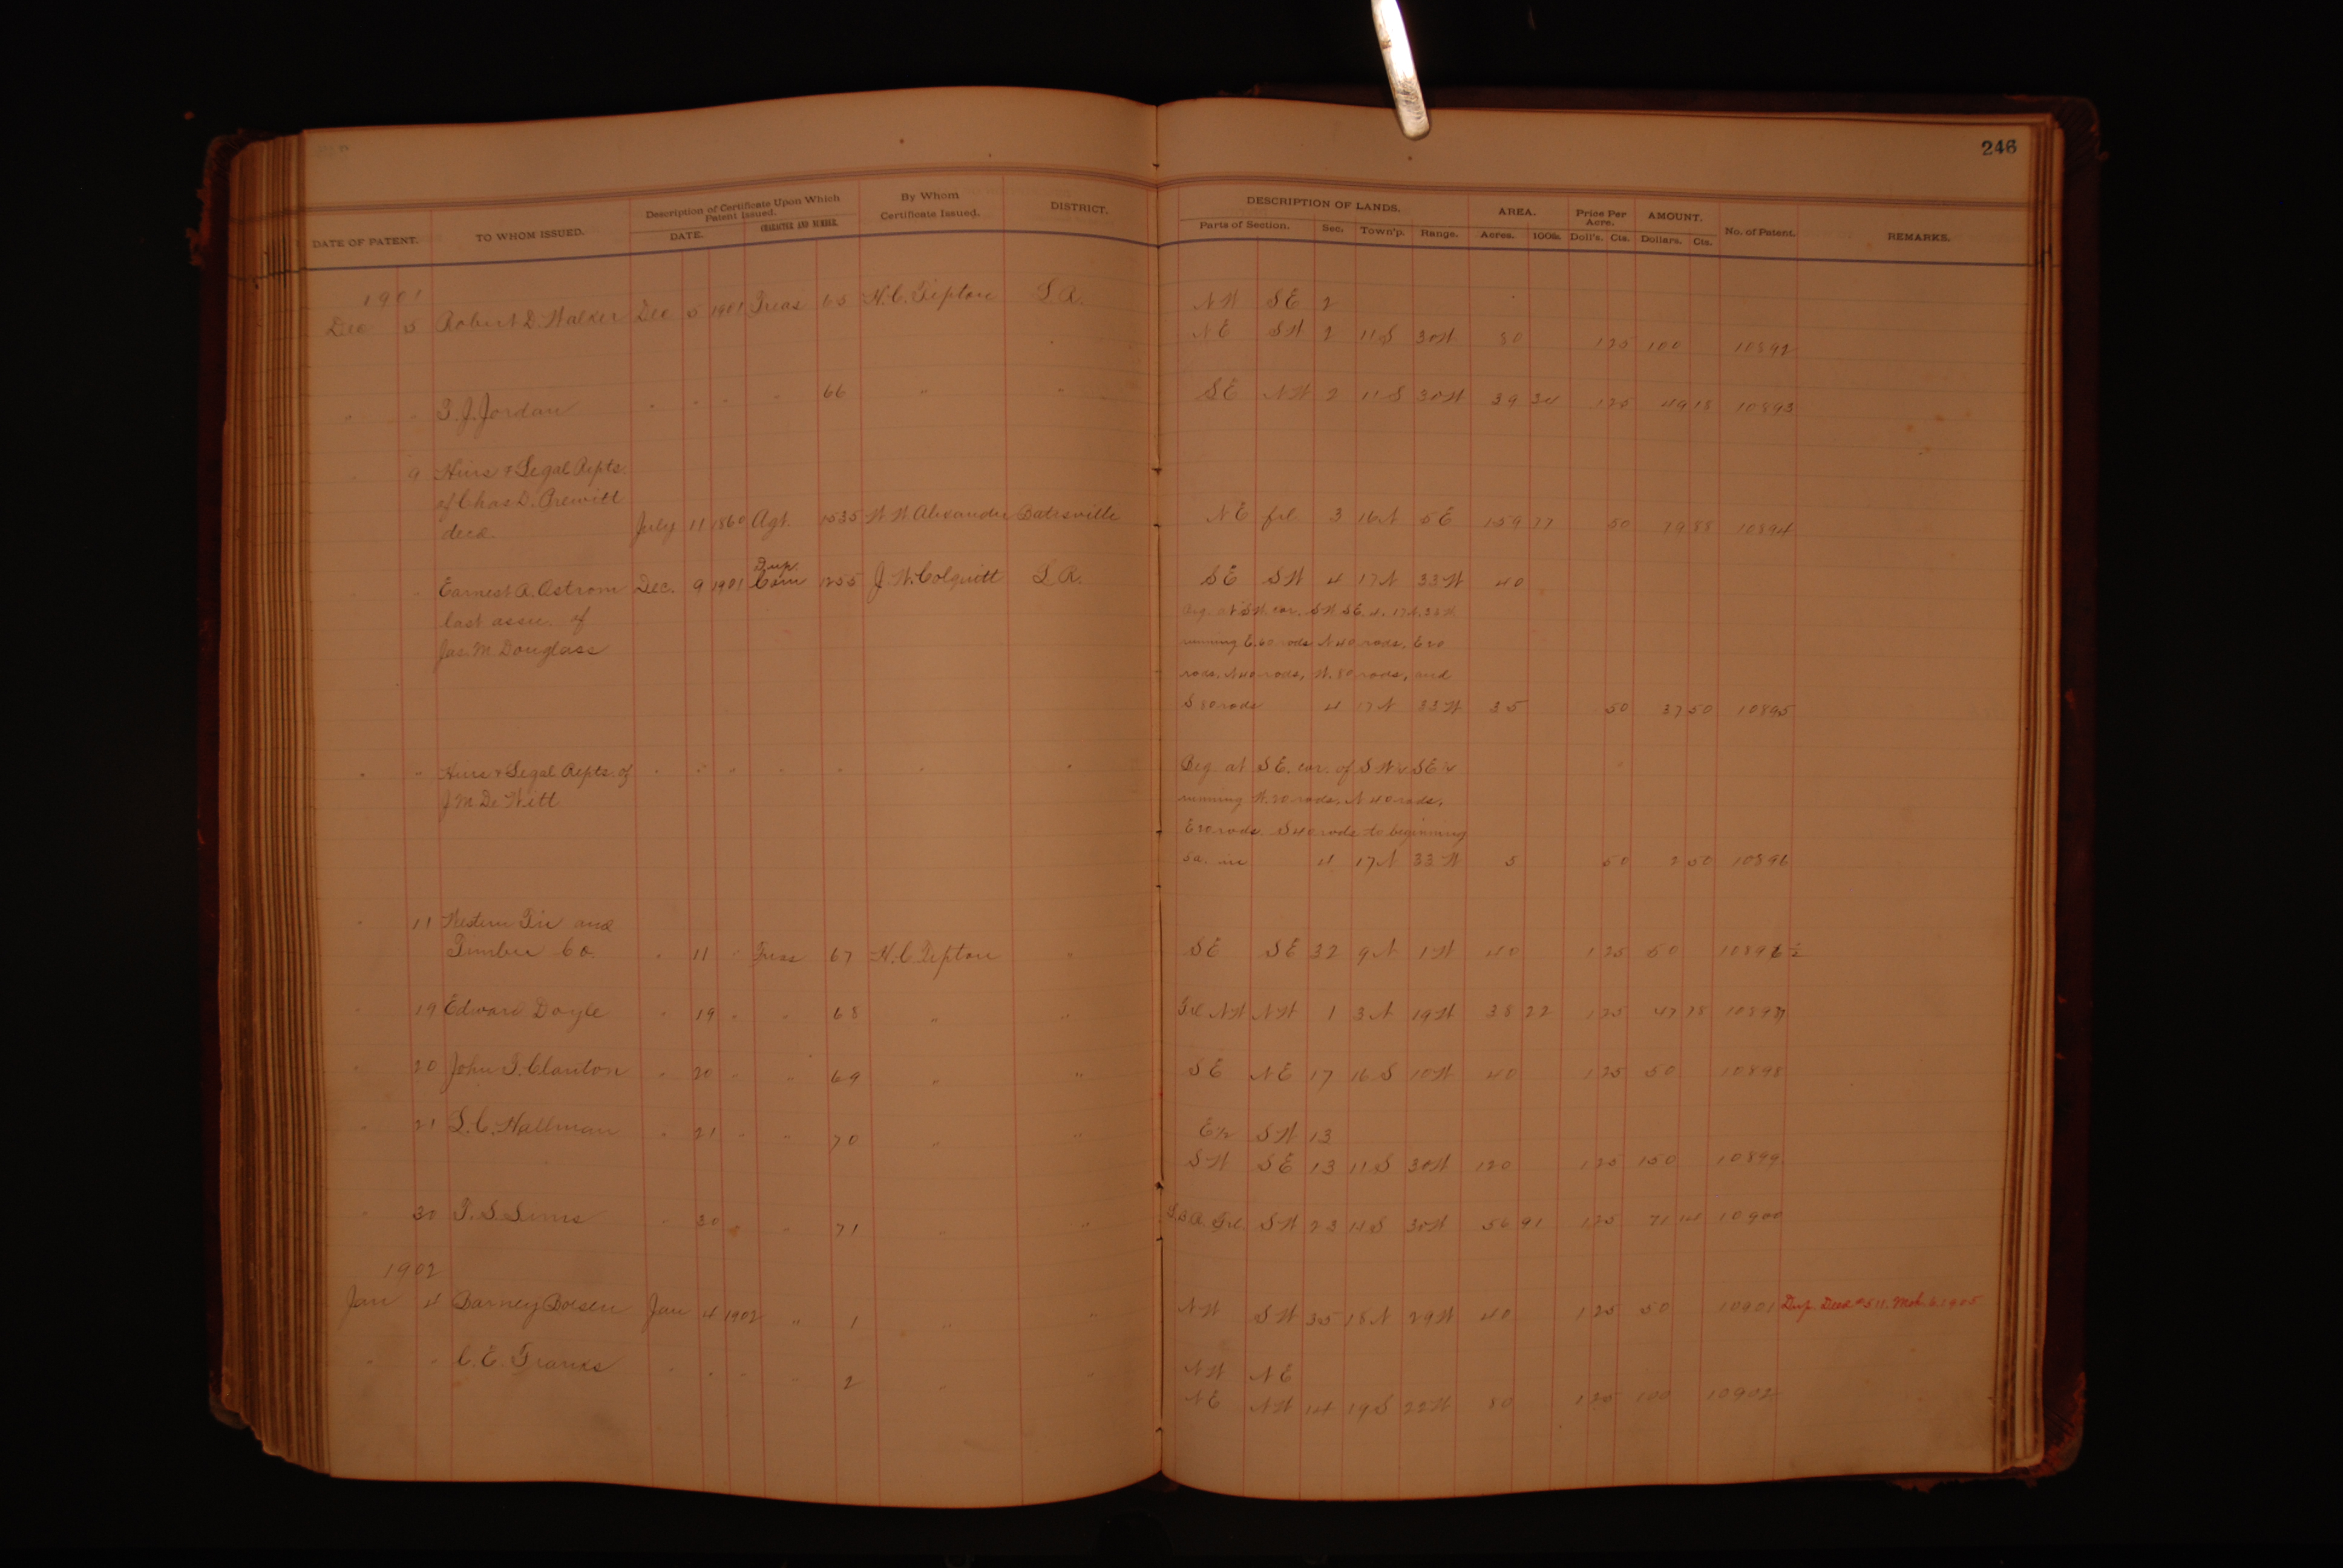 246
DATE OF PATENT. TO WHOM ISSUED. Description of Certificate Upon Which Patent Issued. DATE. CHARACTER AND NUMBER. By Whom Certificate Issued. DISTRICT. DESCRIPTION OF LANDS. Parts of Section. Sec. Town'p. Range. AREA. Acres. 100ths. Price Per Acre. Doll's. Cts. AMOUNT. Dollars. Cts. No. of Patent. REMARKS.
1901
Dec 5 Robert D. Walker Dec 5 1901 Treas 65 H.C. Tipton L.R. NW SE 2
NE SW 2 11S 30W 80 1 25 100 10892
" " T.J. Jordan " " " " 66 " " SE NW 2 11S 30W 39 34 1 25 49 18 10893
" 9 Heirs & Legal Repts.
of Chas D. Prewitt
decd. July 11 1860 Agt. 1535 W W Alexander Batesville NE frl 3 16N 5E 159 77 50 79 88 10894
" " Earnest A. Ostrom Dec. 9 1901 Dup. Com 1255 J.W. Colquitt L.R. SE SW 4 17N 33W 40
last assee. of Beg. at SW. cor. SW SE 4. 17N. 33W
Jas. M. Douglass running E. 60 rods N 40 rods, E 20
rods, N 40 rods, W. 80 rods, and
S 80 rods 4 17N 33W 35 50 37 50 10895
" " Heirs & Legal Repts. of " " " " " " " Beg. at SE. cor. of SW¼ SE¼
J M De Witt running W. 20 rods, N 40 rods,
E 20 rods. S 40 rods to beginning
5a. in 4 17N 33W 5 50 2 50 10896
" 11 Western Tie and
Timber Co. " 11 " Treas 67 H.C Tipton " SE SE 32 9N 1W 40 1 25 50 10896½
" 19 Edward Doyle " 19 " " 68 " " Frl NW NW 1 3N 19W 38 22 1 25 47 78 10897
" 20 John T. Clanton " 20 " " 69 " " SE NE 17 16S 10W 40 1 25 50 10898
" 21 L.C. Hallman " 21 " " 70 " " E½ SW 13
SW SE 13 11S 30W 120 1 25 150 10899
" 30 T.S. Sims " 30 " " 71 " " Frl SW 23 14S 30W 56 91 1 25 71 14 10900
1902
Jan 4 Barney Boesen Jan 4 1902 " 1 " " NW SW 35 18N 29W 40 1 25 50 10901 Dup. Deed #511. Mch. 6. 1905
" " C.E. Franks " " " " 2 " " NW NE
NE NW 14 19S 22W 80 1 25 100 10902